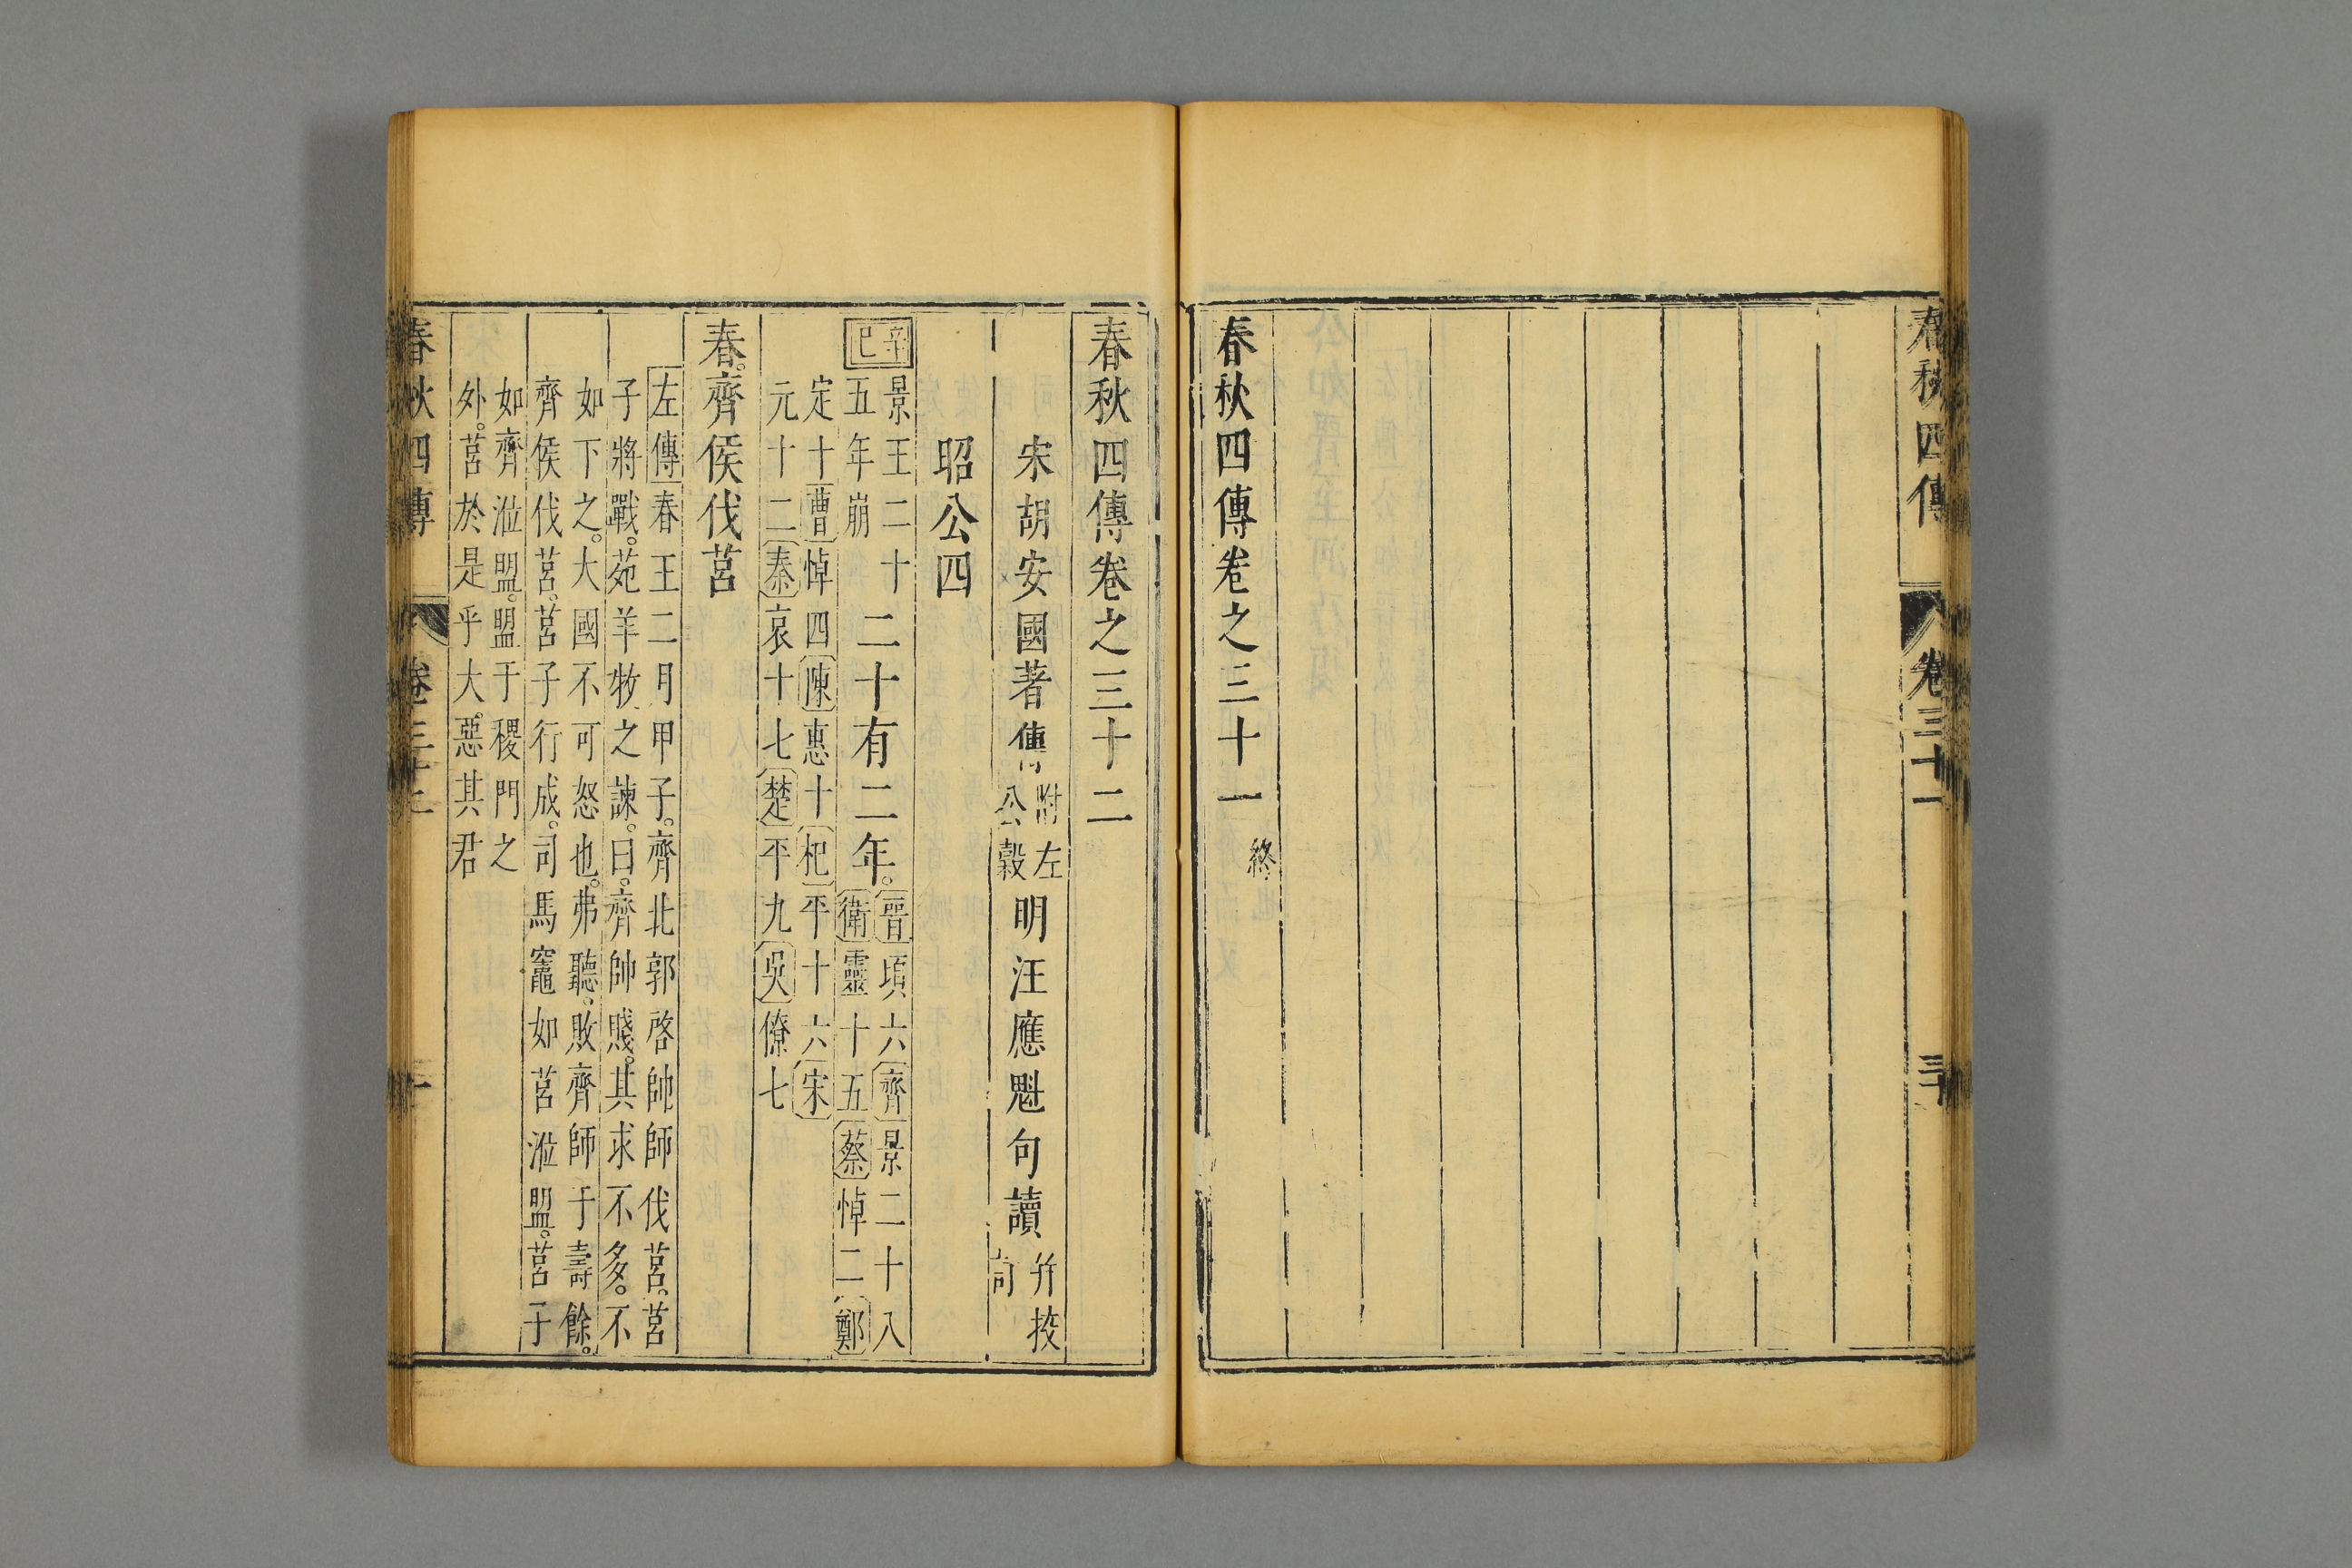 春秋四傳 卷三十一 三十
春秋四傳卷之三十一 終
春秋四傳卷之三十二
宋胡安國著傳 附左
公穀 明汪應魁句讀 并挍
昭公四
辛巳 景王二十
五年崩 二十有二年。晉頃六齊景二十八
衛靈十五蔡悼二鄭
定十曹悼四陳惠十杞平十六宋
元十二秦哀十七楚平九吳僚七
春。齊侯伐莒
左傳春王二月甲子。齊北郭啓帥師伐莒。莒
子將戰。苑羊牧之諫。曰。齊帥賤。其求不多。不
如下之。大國不可怒也。弗聽。敗齊師于壽餘。
齊侯伐莒。莒子行成。司馬竈如莒涖盟。莒子
如齊涖盟。盟于稷門之
外。莒於是乎大惡其君
春秋四傳 卷三十二 一